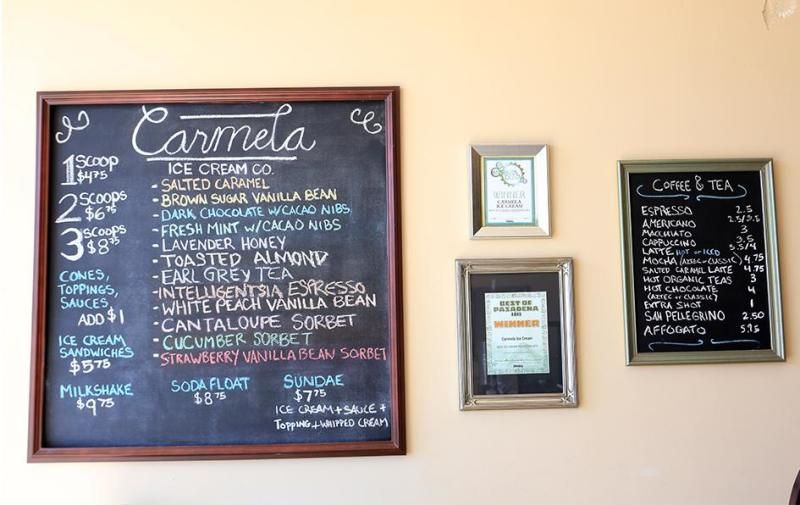 Carmela
ICE CREAM CO.
1 SCOOP
$4.75
2 SCOOPS
$6.75
3 SCOOPS
$8.75
CONES,
TOPPINGS,
SAUCES,
ADD $1
ICE CREAM
SANDWICHES
$5.75
MILKSHAKE
$9.75
- SALTED CARAMEL
- BROWN SUGAR VANILLA BEAN
- DARK CHOCOLATE W/CACAO NIBS
- FRESH MINT W/CACAO NIBS
- LAVENDER HONEY
- TOASTED ALMOND
- EARL GREY TEA
- INTELLIGENTSIA ESPRESSO
- WHITE PEACH VANILLA BEAN
- CANTALOUPE SORBET
- CUCUMBER SORBET
- STRAWBERRY VANILLA BEAN SORBET
SODA FLOAT
$8.75
SUNDAE
$7.75
ICE CREAM + SAUCE +
TOPPING + WHIPPED CREAM
WINNER
CARMELA
ICE CREAM
BEST OF
PASADENA
WINNER
Carmela Ice Cream
COFFEE & TEA
ESPRESSO 2.5
AMERICANO 2.5/3.5
MACCHIATO 3
CAPPUCCINO 3.5
LATTE HOT or ICED 3.5/4
MOCHA (AZTEC or CLASSIC) 4.75
SALTED CARAMEL LATTE 4.75
HOT ORGANIC TEAS 3
HOT CHOCOLATE 4
(AZTEC or CLASSIC)
EXTRA SHOT 1
SAN PELLEGRINO 2.50
AFFOGATO 5.75